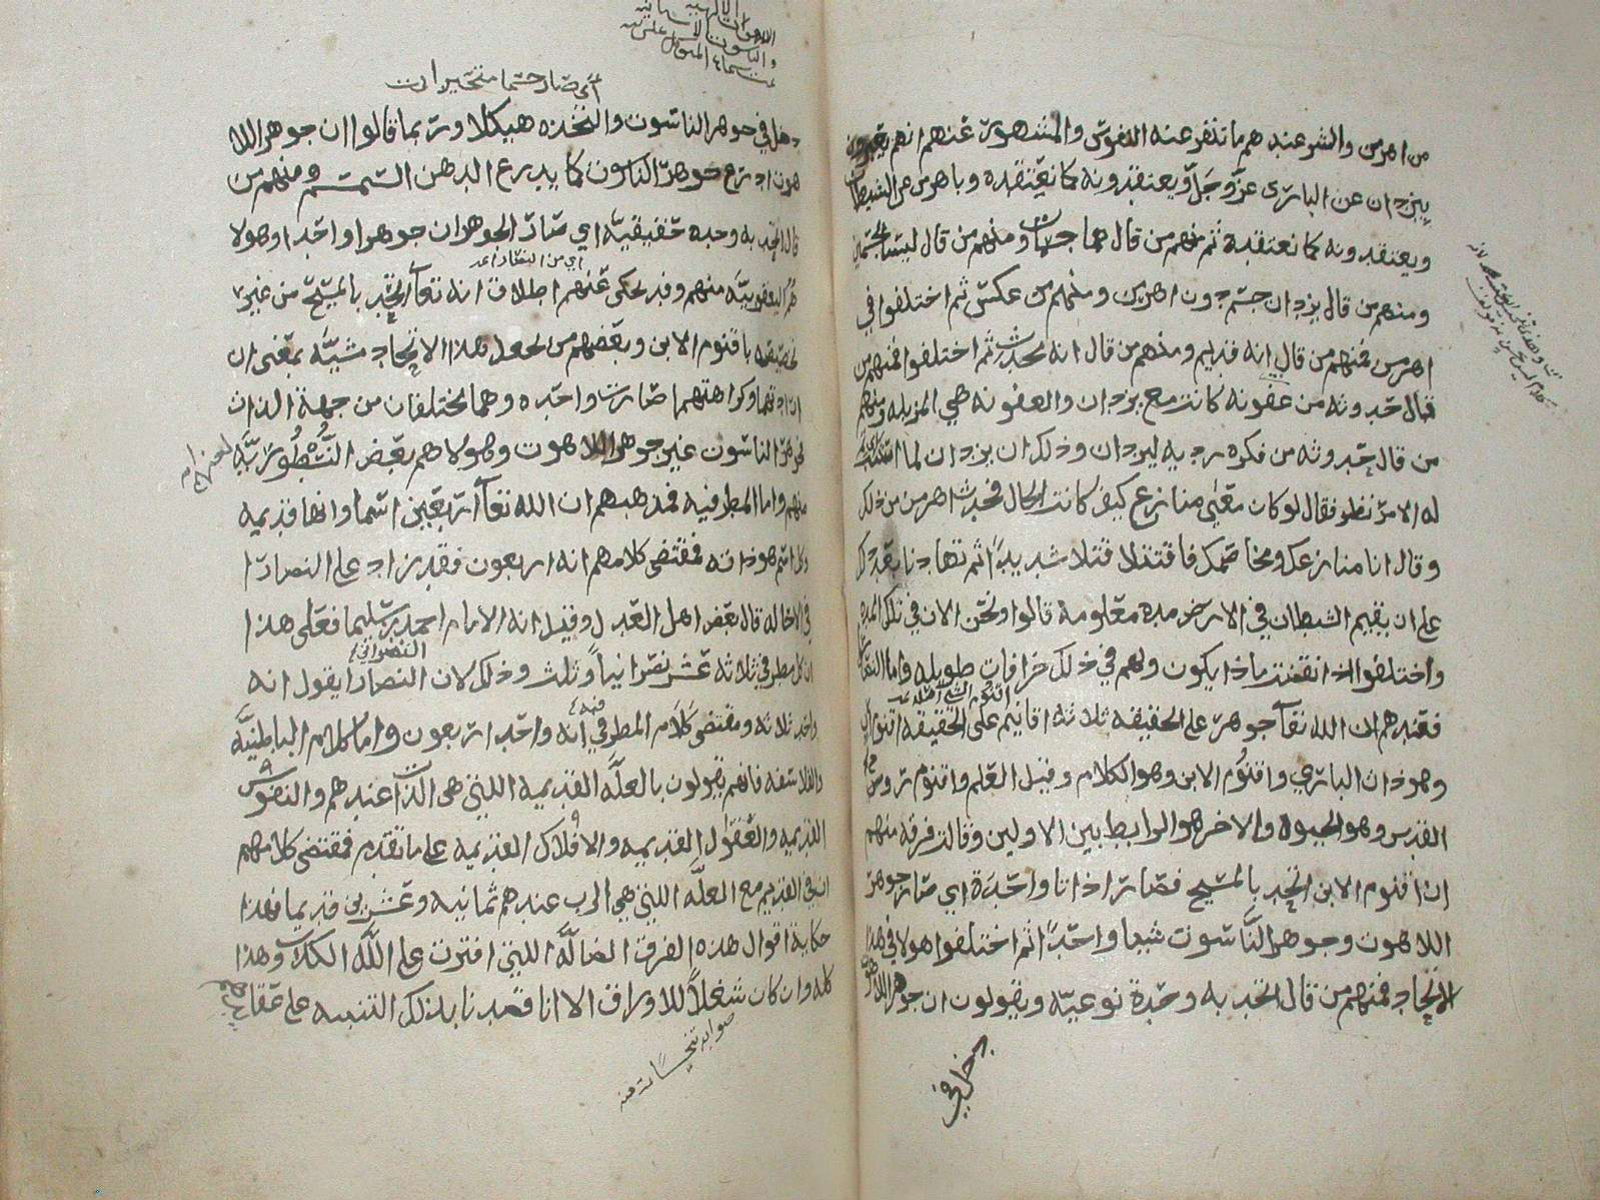 من اهرمن والشر عندهم ما تنفر عنه النفوس والمشهور عنهم انهم يعبرون
بيزدان عن الباري عز وجل ويعتقدونه كما نعتقده وباهرمن عن الشيطان
ويعتقدونه كما نعتقده ثم منهم من قال هما جسمان ومنهم من قال ليسا بجسمين
ومنهم من قال يزدان جسم دون اهرمن ومنهم من عكس ثم اختلفوا في
اهرمن فمنهم من قال انه قديم ومنهم من قال انه محدث ثم اختلفوا فمنهم من
قال حدوثه من عفونه كانت مع يزدان والعفونه هي المزبله ومنهم
من قال حدوثه من فكره رديه ليزدان وذلك ان يزدان لما
له الامر نظر فقال لو كان معي منازع كيف كانت الحال فحدث اهرمن من ذلك
وقال انا منازعك ومخاصمك فاقتتلا قتلا شديدا ثم تهادنا بعد ذلك
على ان يقيم الشيطان في الارض مده معلومة قالوا ونحن الان في تلك المده
واختلفوا اذا انقضت ماذا يكون ولهم في ذلك خرافات طويله واما النصارى
فعندهم ان الله تعا جوهر على الحقيقه ثلاثه اقانيم على الحقيقه اقنوم
وهو ذات الباري واقنوم الابن وهو الكلام وقيل العلم واقنوم روح
القدس وهو الحيوه والاخر هو الرابط بين الاولين وقالت فرقه منهم
ان اقنوم الابن اتحد بالمسيح فصارا ذاتا واحدة اي صار جوهر
اللاهوت وجوهر الناسوت شيا واحدا ثم اختلفوا هولا في هذا
الاتحاد فمنهم من قال اتحد به وحدة نوعيه ويقولون ان جوهر اللاهوت
دخل في
اي صار جسما متحيزا
دخل في جوهر الناسوت واتخذه هيكلا وربما قالوا ان جوهر اللا
هوت ادرع جوهر الناسوت كما يدرع الدهن السمسم ومنهم من
قال اتحد به وحده حقيقيه اي صار الجوهران جوهرا واحدا وهولا
اي من النصارى
هم اليعقوبيه منهم وقد يحكى عنهم اطلاق انه تعا اتحد بالمسيح من غير
تخصيصه باقنوم الابن وبعضهم من يجعل هذا الاتحاد مشيه بمعنى ان
ارادتهما وكراهتهما صارت واحده وهما مختلفان من جهة الذات
فجوهر الناسوت غير جوهر اللاهوت وهولا هم بعض النسطوريه
منهم واما المطرفيه فمذهبهم ان الله تعا اربعين اسما وانها قديمه
وكل اسم هو ذاته فمقتضى كلامهم انه اربعون فقد زاد على النصارا
في الاحاله قال بعض اهل العدل وقيل انه الامام احمد بن سليما فعلى هذا
ان كل مطرفي ثلاثه عشر نصرانيا وثلث وذلك لان النصارا يقول انه
النصراني
واحد ثلاثه ومقتضى كلام المطرفي انه واحد اربعون واما كلام الباطنيه
والفلاسفه فانهم يقولون بالعله القديمه اللتي هي الذات عندهم والنفوس
القديمه والعقول القديمه والافلاك القديمه على ما تقدم فمقتضى كلامهم
ان في القديم مع العله اللتي هي الرب عندهم ثمانيه وعشرين قديما فهذا
حكاية اقوال هذه الفرق الضاله اللتي افترت على الله الكذب وهذا
كله وان كان شغلا للاوراق الا انا قصدنا بذلك التنبيه على عقائدهم